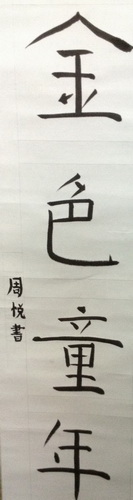 金色童年
周悦書